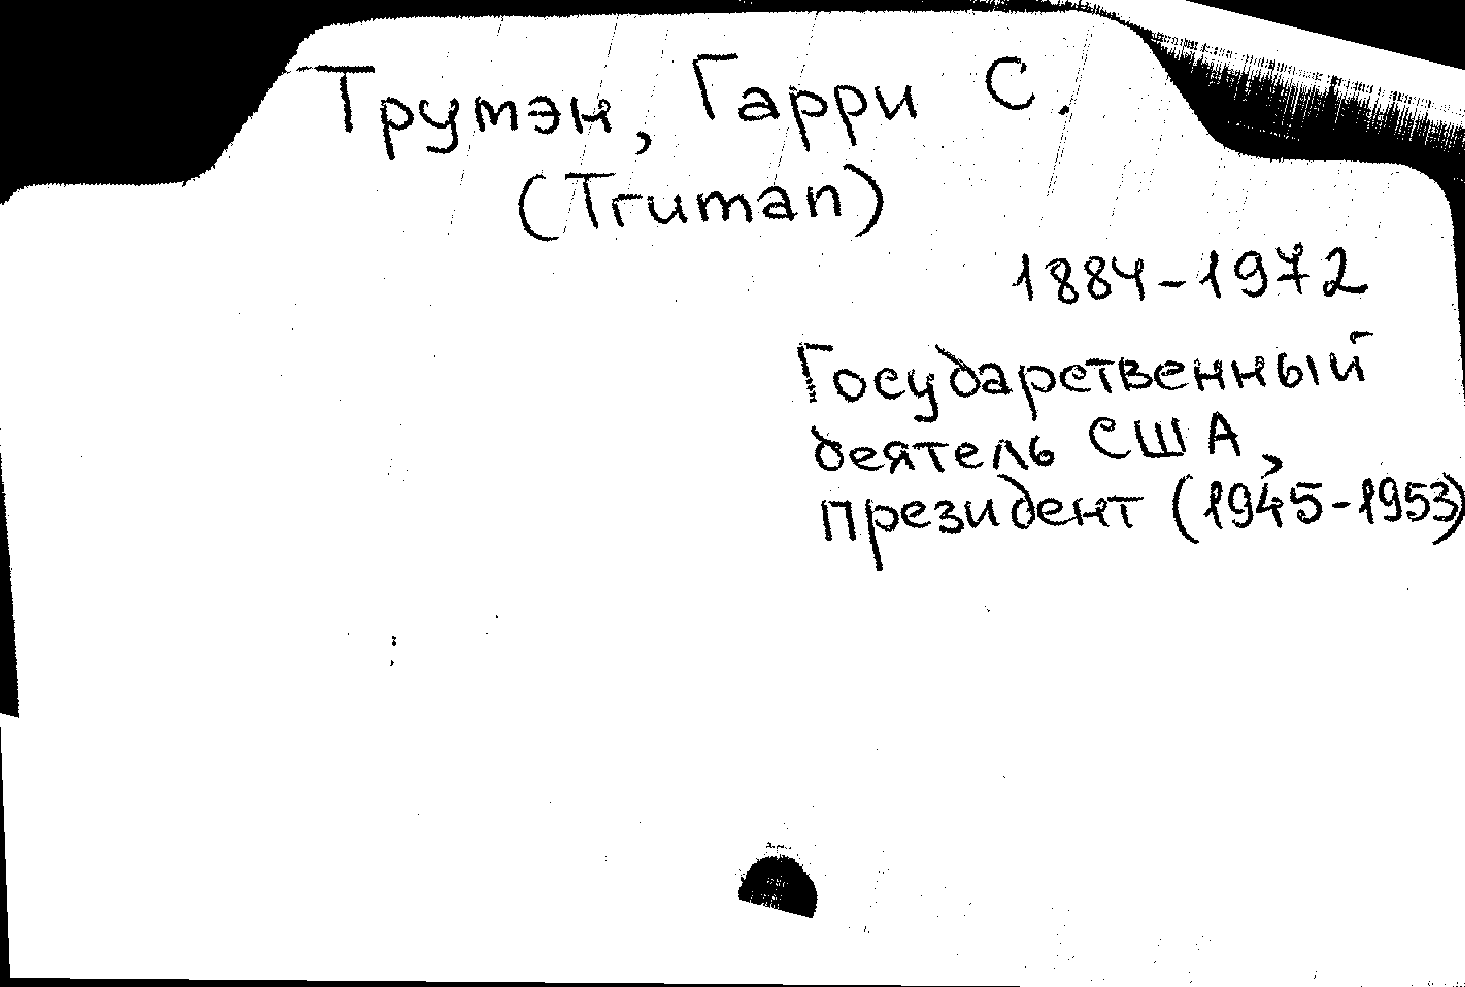 Трумэн, Гарри С.
(Truman)
1884-1972
Государственный
деятель США,
президент (1945-1953)